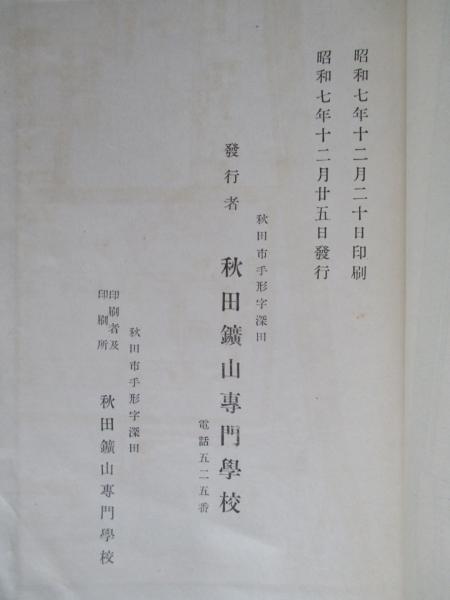 昭和七年十二月二十日印刷
昭和七年十二月廿五日發行
秋田市手形字深田
發行者 秋田鑛山專門學校
電話五二五番
秋田市手形字深田
印刷者及
印刷所
秋田鑛山專門學校